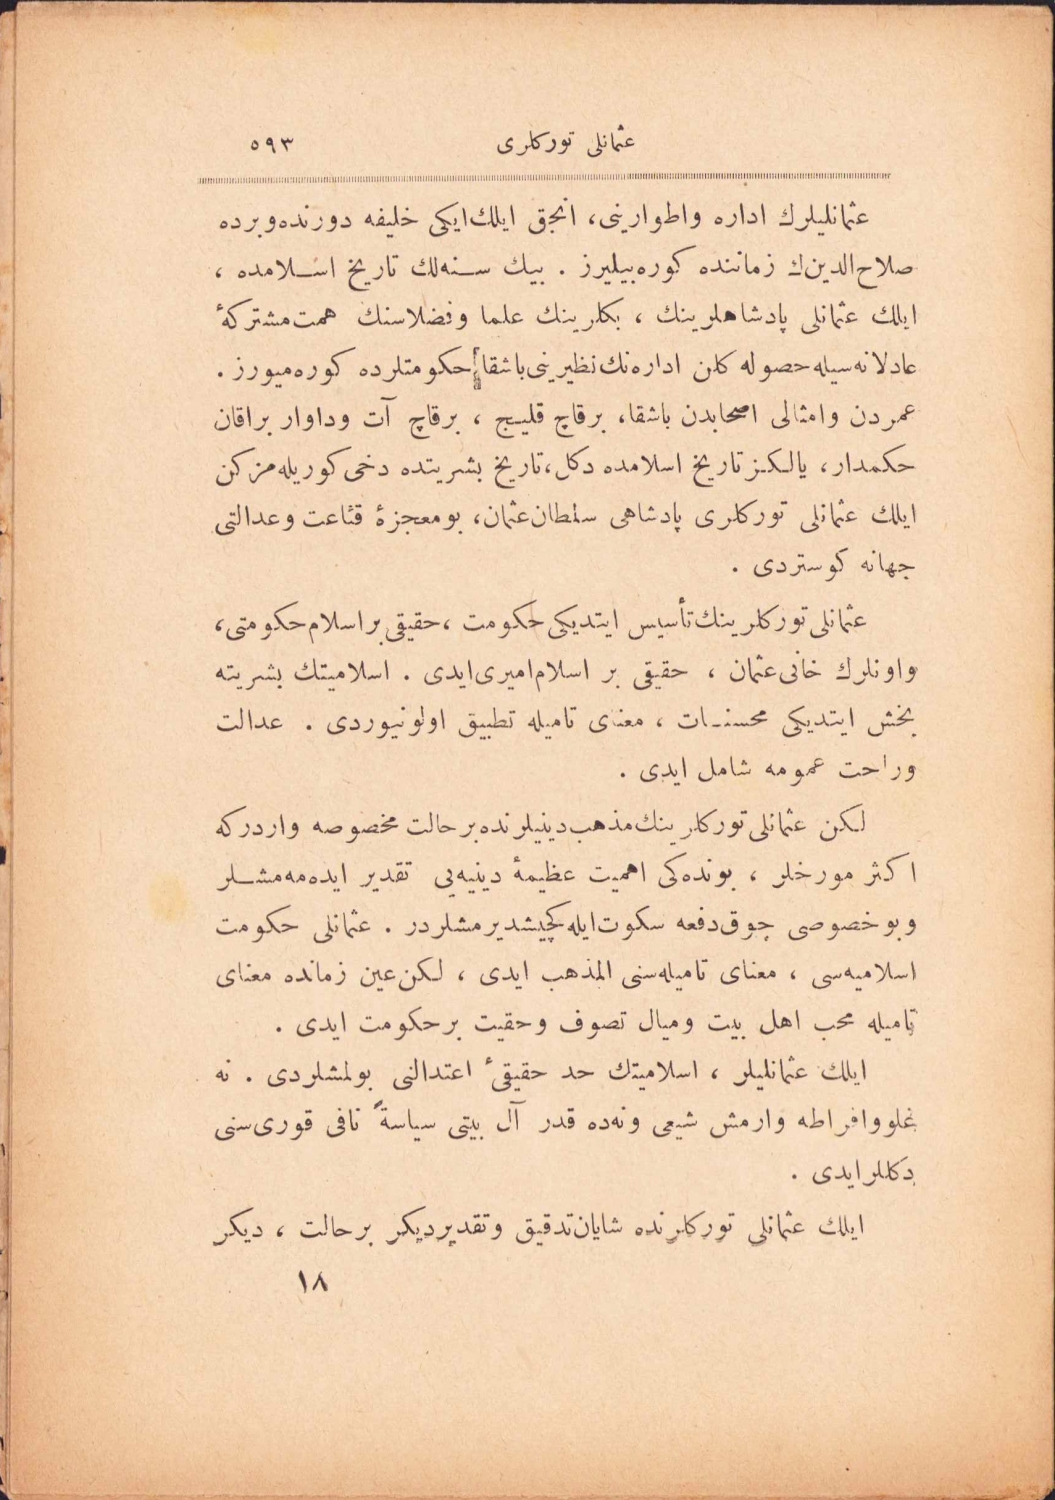 عثمانلی تورکلری ٥٩٣
عثمانلیلرك اداره واطوارینی، انجق ایلك ایکی خلیفه دورنده وبرده
صلاح‌الدین‌ك زماننده کوره بیلیرز . بیك سنه‌لك تاریخ اسلامده ،
ایلك عثمانلی پادشاهلرینك ، بکلرینك علما وفضلاسنك همت مشترکهٔ
عادلانه سیله حصوله کلن اداره‌نك نظیرینی باشقا حکومتلرده کوره میورز .
عمردن وامثالی اصحابدن باشقا، برقاچ قلیج ، برقاچ آت وداوار براقان
حکمدار، یالکز تاریخ اسلامده دکل، تاریخ بشریتده دخی کوریله مزکن
ایلك عثمانلی تورکلری پادشاهی سلطان عثمان، بو معجزهٔ قناعت وعدالتی
جهانه کوستردی .
عثمانلی تورکلرینك تأسیس ایتدیکی حکومت ، حقیقی بر اسلام حکومتی،
واونلرك خانی عثمان ، حقیقی بر اسلام امیری ایدی . اسلامیتك بشریته
بخش ایتدیکی محسنات ، معنای تامیله تطبیق اولونیوردی . عدالت
وراحت عمومه شامل ایدی .
لکن عثمانلی تورکلرینك مذهب دینیلرنده بر حالت مخصوصه واردرکه
اکثر مورخلر ، بونده‌کی اهمیت عظیمهٔ دینیه‌یی تقدیر ایده‌مه‌مشلر
وبو خصوصی چوق دفعه سکوت ایله کچیشدیرمشلردر . عثمانلی حکومت
اسلامیه‌سی ، معنای تامیله سنی المذهب ایدی ، لکن عین زمانده معنای
تامیله محب اهل بیت ومیال تصوف وحقیت بر حکومت ایدی .
ایلك عثمانلیلر ، اسلامیتك حد حقیقیٔ اعتدالنی بولمشلردی . نه
غلو وافراطه وارمش شیعی ونه‌ده قدر آل بیتی سیاسةً نافی قوری سنی
دکللر ایدی .
ایلك عثمانلی تورکلرنده شایان تدقیق وتقدیر دیکر بر حالت ، دیکر
١٨